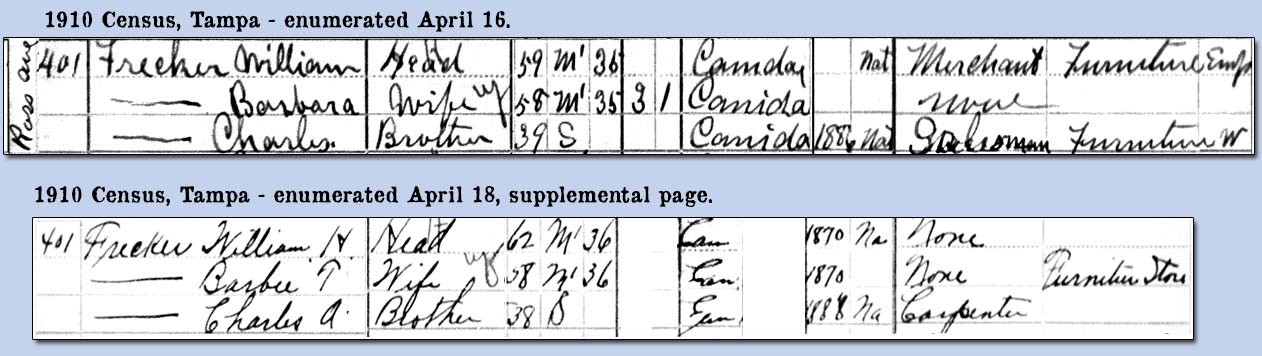 1910 Census, Tampa - enumerated April 16.
Ross ave
401 Frecker William Head 59 M1 36 Camday Nat Merchant Furniture Emp
Barbara Wife 58 M1 35 3 1 Canida None
Charles. Brother 39 S Canida 1886 Nat Salesman Furniture W
1910 Census, Tampa - enumerated April 18, supplemental page.
401 Frecker William H. Head 62 M1 36 Can 1870 Na None
Barbee T Wife 58 M1 36 Can. 1870 None Furniture Store
Charles A. Brother 38 S 1888 Na Carpenter